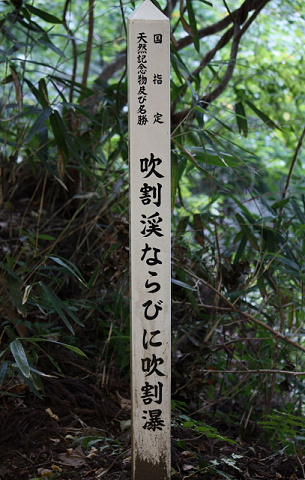 国指定
天然記念物及び名勝
吹割渓ならびに吹割瀑